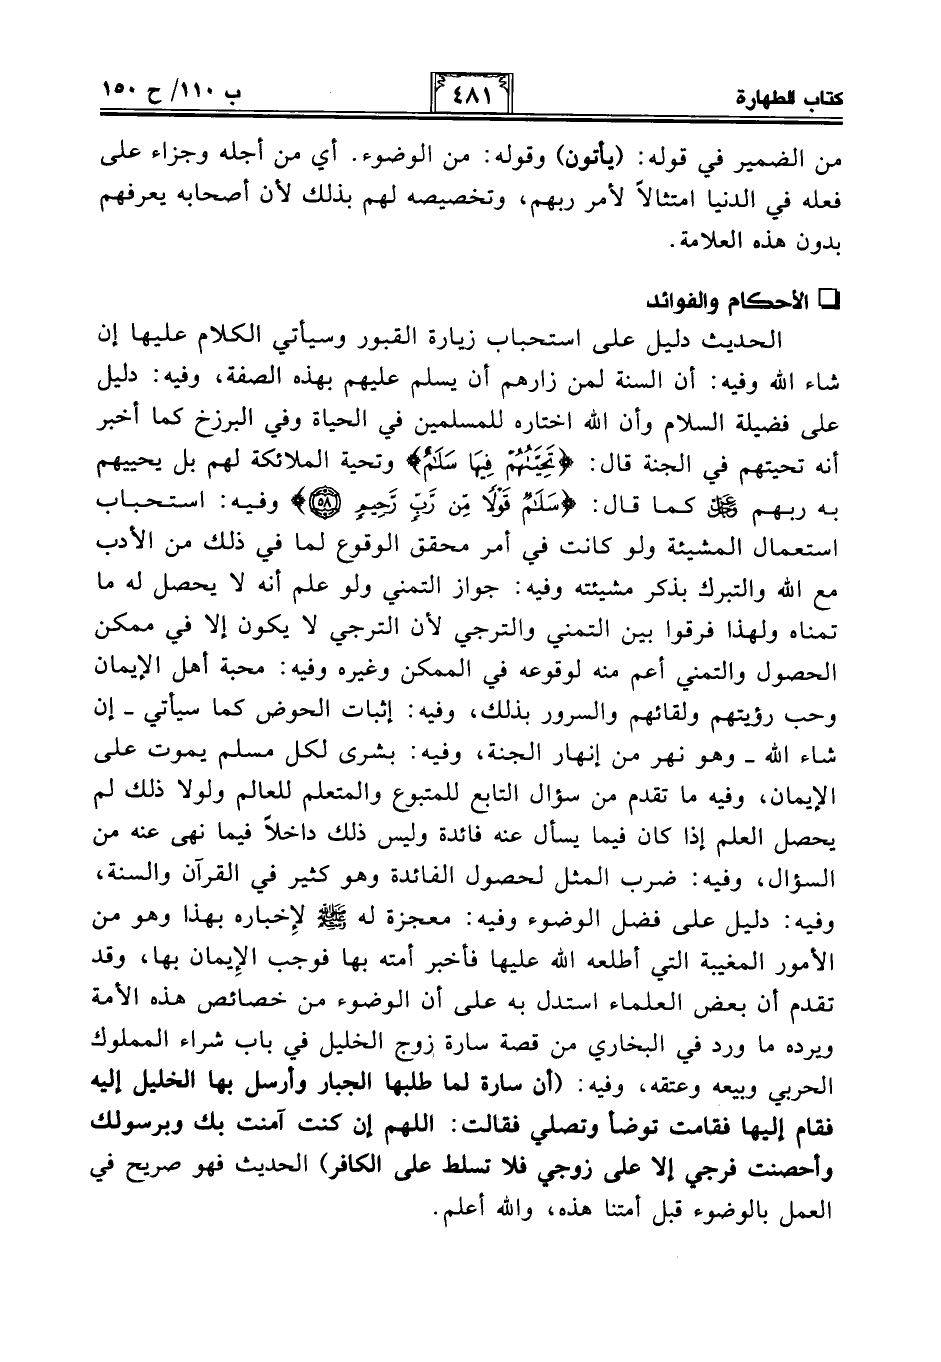 كتاب الطهارة ٤٨١ ب ١١٠/ ح ١٥٠
من الضمير في قوله: (يأتون) وقوله: من الوضوء. أي من أجله وجزاء على
فعله في الدنيا امتثالاً لأمر ربهم، وتخصيصه لهم بذلك لأن أصحابه يعرفهم
بدون هذه العلامة.
❑ الأحكام والفوائد
الحديث دليل على استحباب زيارة القبور وسيأتي الكلام عليها إن
شاء الله وفيه: أن السنة لمن زارهم أن يسلم عليهم بهذه الصفة، وفيه: دليل
على فضيلة السلام وأن الله اختاره للمسلمين في الحياة وفي البرزخ كما أخبر
أنه تحيتهم في الجنة قال: ﴿تَحِيَّتُهُمْ فِيهَا سَلَٰمٌ﴾ وتحية الملائكة لهم بل يحييهم
به ربهم ﷻ كما قال: ﴿سَلَٰمٌ قَوْلًا مِّن رَّبٍّ رَّحِيمٍ ٥٨﴾ وفيه: استحباب
استعمال المشيئة ولو كانت في أمر محقق الوقوع لما في ذلك من الأدب
مع الله والتبرك بذكر مشيئته وفيه: جواز التمني ولو علم أنه لا يحصل له ما
تمناه ولهذا فرقوا بين التمني والترجي لأن الترجي لا يكون إلا في ممكن
الحصول والتمني أعم منه لوقوعه في الممكن وغيره وفيه: محبة أهل الإيمان
وحب رؤيتهم ولقائهم والسرور بذلك، وفيه: إثبات الحوض كما سيأتي ـ إن
شاء الله ـ وهو نهر من إنهار الجنة، وفيه: بشرى لكل مسلم يموت على
الإيمان، وفيه ما تقدم من سؤال التابع للمتبوع والمتعلم للعالم ولولا ذلك لم
يحصل العلم إذا كان فيما يسأل عنه فائدة وليس ذلك داخلاً فيما نهى عنه من
السؤال، وفيه: ضرب المثل لحصول الفائدة وهو كثير في القرآن والسنة،
وفيه: دليل على فضل الوضوء وفيه: معجزة له ﷺ لإخباره بهذا وهو من
الأمور المغيبة التي أطلعه الله عليها فأخبر أمته بها فوجب الإيمان بها، وقد
تقدم أن بعض العلماء استدل به على أن الوضوء من خصائص هذه الأمة
ويرده ما ورد في البخاري من قصة سارة زوج الخليل في باب شراء المملوك
الحربي وبيعه وعتقه، وفيه: (أن سارة لما طلبها الجبار وأرسل بها الخليل إليه
فقام إليها فقامت توضأ وتصلي فقالت: اللهم إن كنت آمنت بك وبرسولك
وأحصنت فرجي إلا على زوجي فلا تسلط على الكافر) الحديث فهو صريح في
العمل بالوضوء قبل أمتنا هذه، والله أعلم.